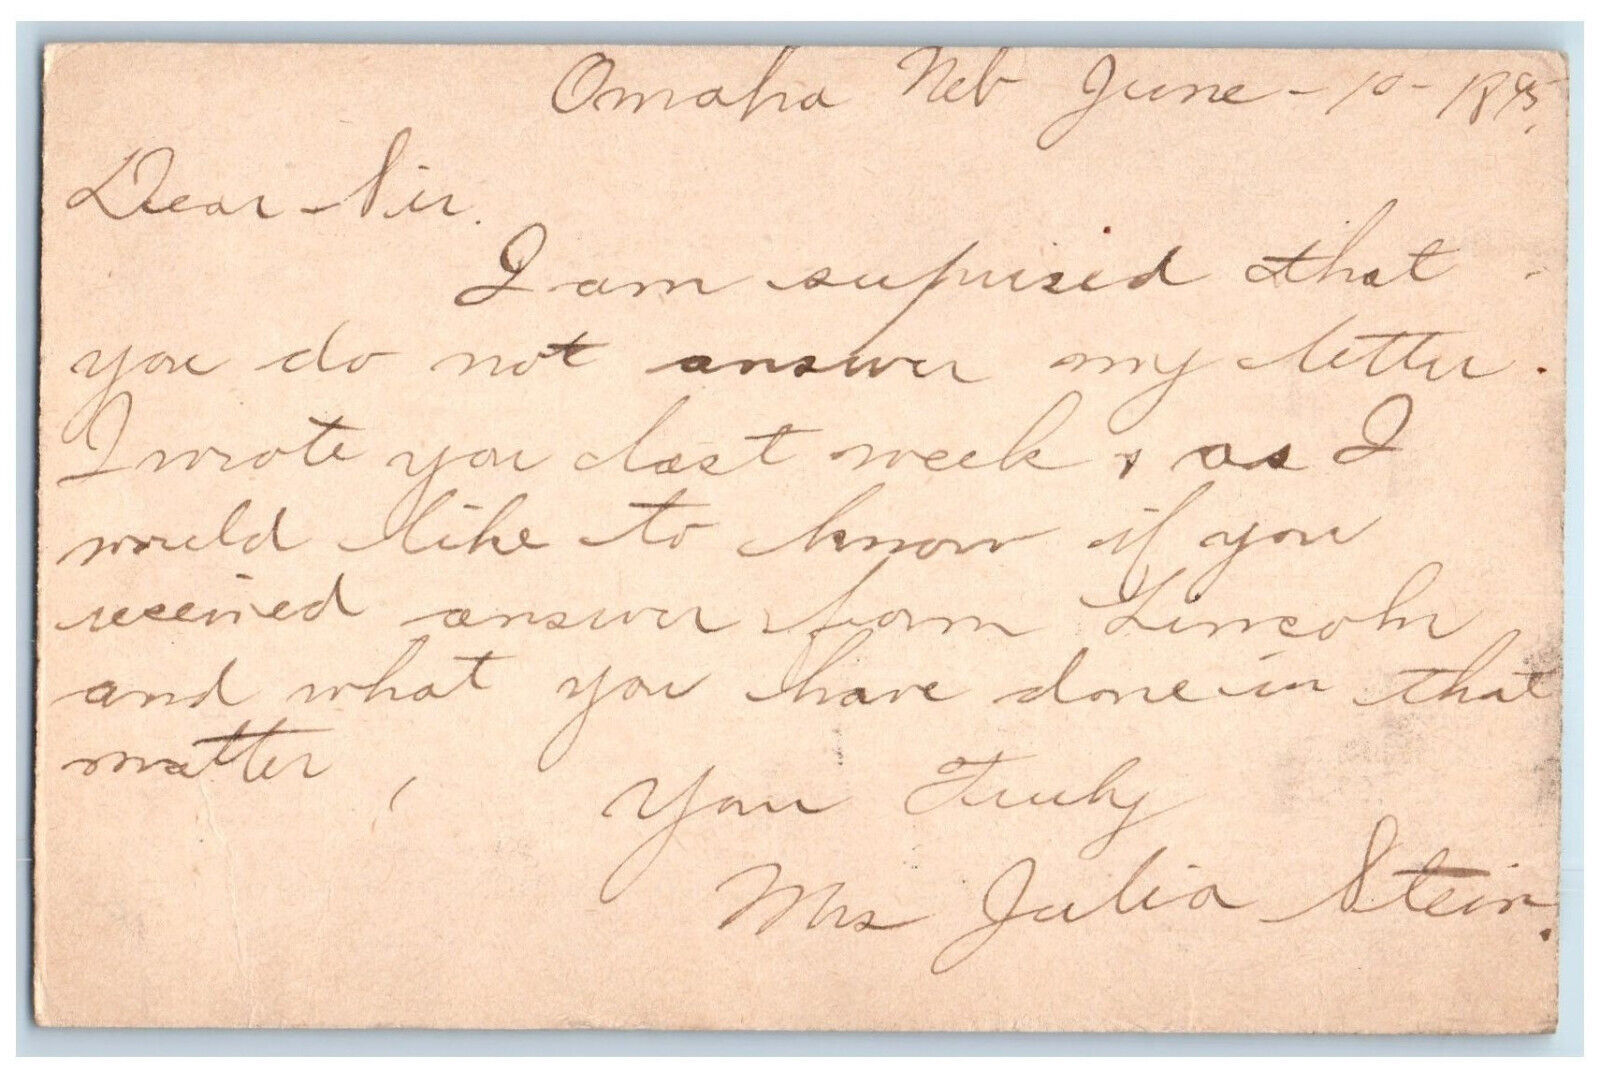 Omaha Neb June - 10 - 1895,
Dear Sir.
I am supprised that
you do not answer my letter.
I wrote you last week, as I
would like to know if you
received answer form Lincoln
and what you have done in that
matter,
Your Truly
Mrs Julia Stein.